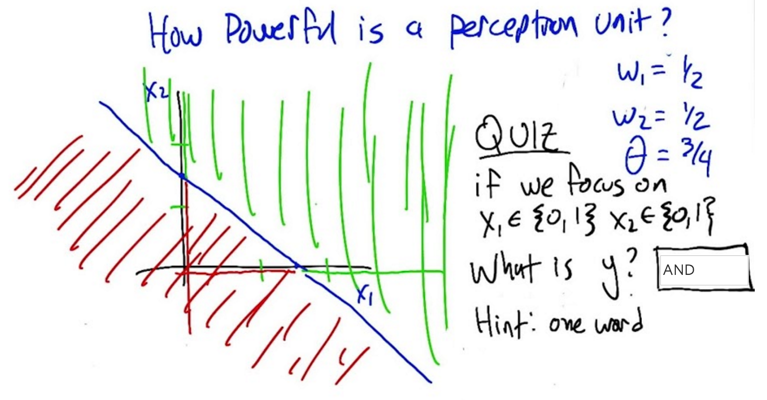 How Powerful is a perceptron unit?
w₁ = 1/2
w₂ = 1/2
θ = 3/4
x₂
x₁
QUIZ
if we focus on
x₁ ∈ {0,1} x₂ ∈ {0,1}
What is y? AND
Hint: one word